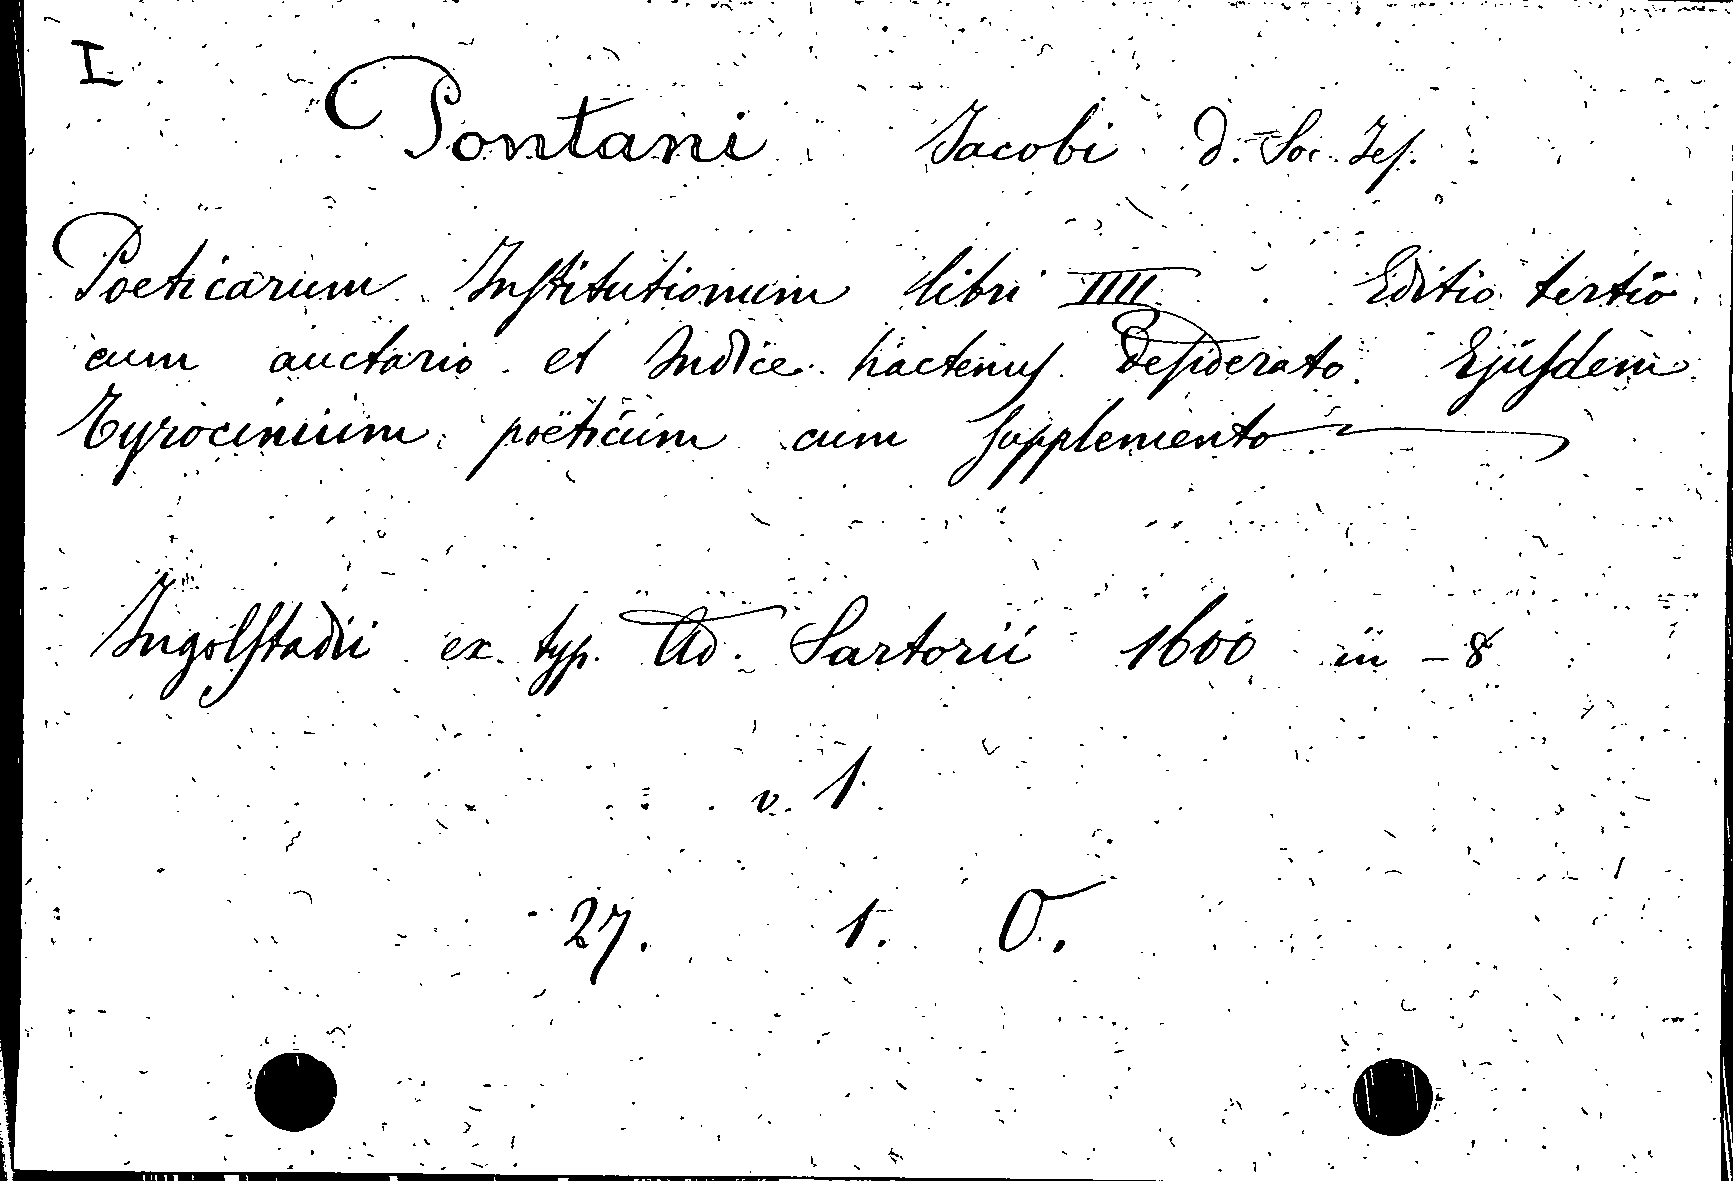 I
Pontani Jacobi d. Soc. Jes.
Poeticarum Institutionum libri IIII. Editio tertio
cum auctario et Indice hactenus desiderato. Ejusdem
Tyrocinium poëticum cum supplemento
Ingolstadii ex typ. Ad. Sartorii 1600 in - 8
v. 1.
27. 1. O.